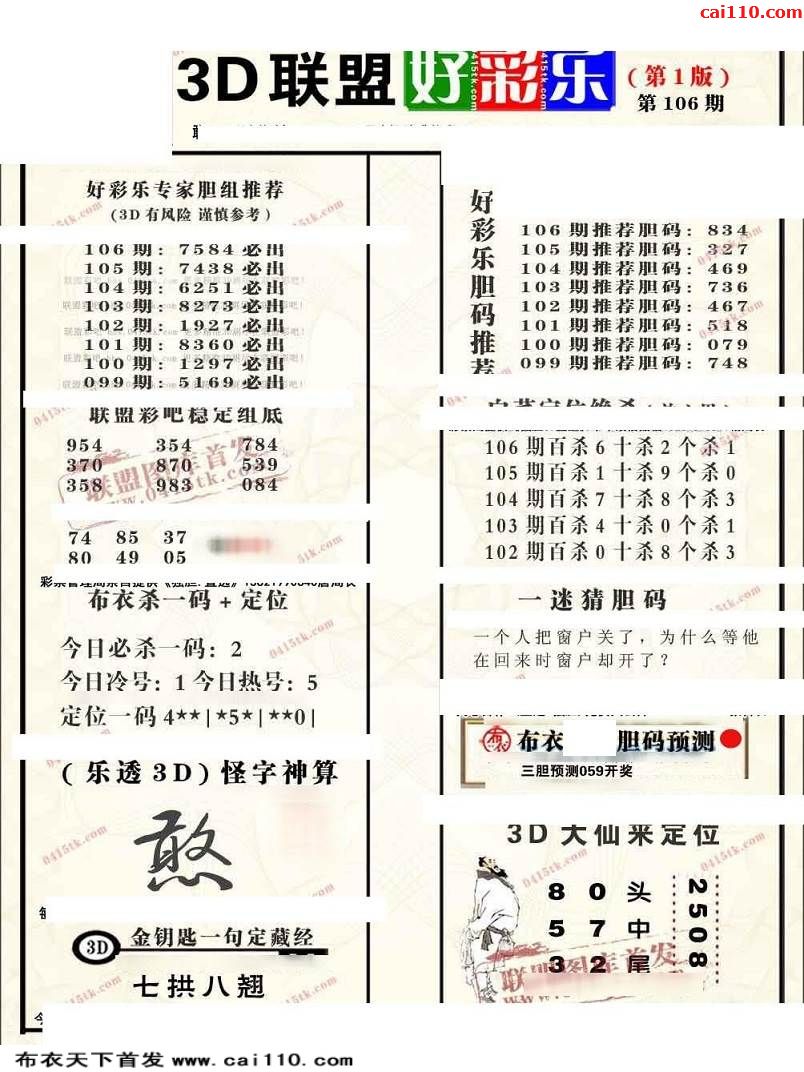 cai110.com
3D联盟好彩乐
(第1版)
第106期
好彩乐专家胆组推荐
(3D有风险 谨慎参考)
106期：7584必出
105期：7438必出
104期：6251必出
103期：8273必出
102期：1927必出
101期：8360必出
100期：1297必出
099期：5169必出
联盟彩吧稳定组底
954 354 784
370 870 539
358 983 084
74 85 37
80 49 05
布衣杀一码+定位
今日必杀一码：2
今日冷号：1 今日热号：5
定位一码 4**|*5*|**0|
(乐透3D)怪字神算
憨
3D 金钥匙一句定藏经
七拱八翘
好彩乐胆码推荐
106期推荐胆码：834
105期推荐胆码：327
104期推荐胆码：469
103期推荐胆码：736
102期推荐胆码：467
101期推荐胆码：518
100期推荐胆码：079
099期推荐胆码：748
106期百杀6十杀2个杀1
105期百杀1十杀9个杀0
104期百杀7十杀8个杀3
103期百杀4十杀0个杀1
102期百杀0十杀8个杀3
一迷猜胆码
一个人把窗户关了，为什么等他
在回来时窗户却开了？
布衣 布衣 胆码预测
三胆预测059开奖
3D大仙来定位
8 0 头
5 7 中
3 2 尾
2508
联盟图库首发
www.0415tk.com
0415tk.com
布衣天下首发 www.cai110.com